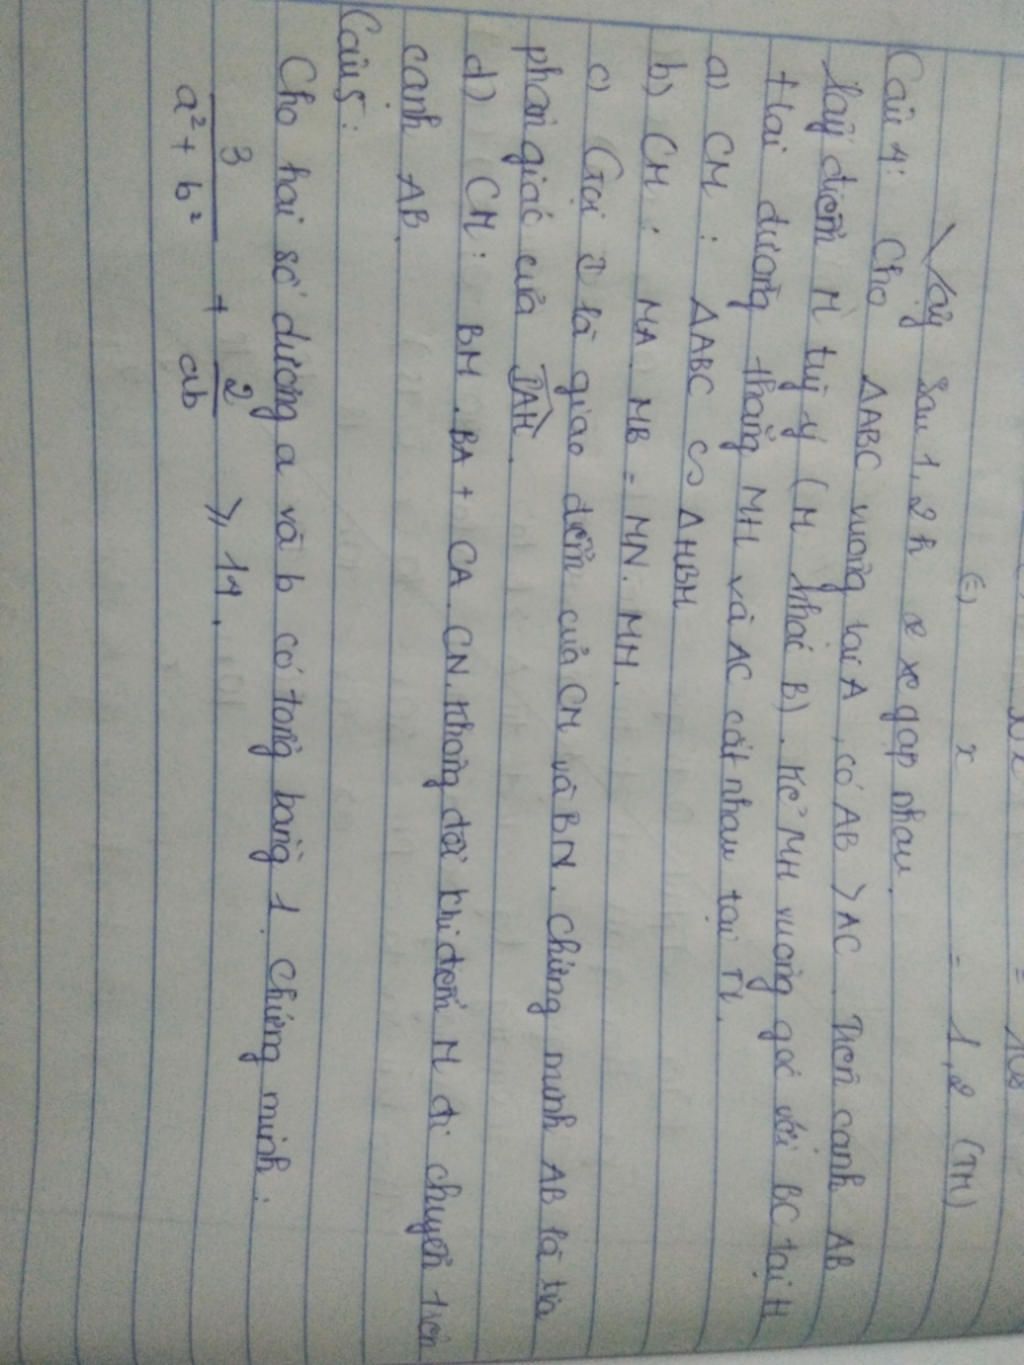 (t) x = 1,2 (TM)
Vậy sau 1,2 h 2 xe gặp nhau.
Câu 4: Cho ΔABC vuông tại A, có AB > AC. Trên cạnh AB
lấy điểm M tuỳ ý (M khác B). Kẻ MH vuông góc với BC tại H
Hai đường thẳng MH và AC cắt nhau tại N.
a) CM: ΔABC ∽ ΔHBM
b) CM: MA. MB = MN. MH.
c) Gọi I là giao điểm của CM và BN. chứng minh AB là tia
phân giác của IAH.
d) CM: BM. BA + CA. CN. không đổi khi điểm M di chuyển trên
cạnh AB.
Câu 5:
Cho hai số dương a và b có tổng bằng 1. Chứng minh:
3/(a² + b²) + 2/ab ⩾ 14.